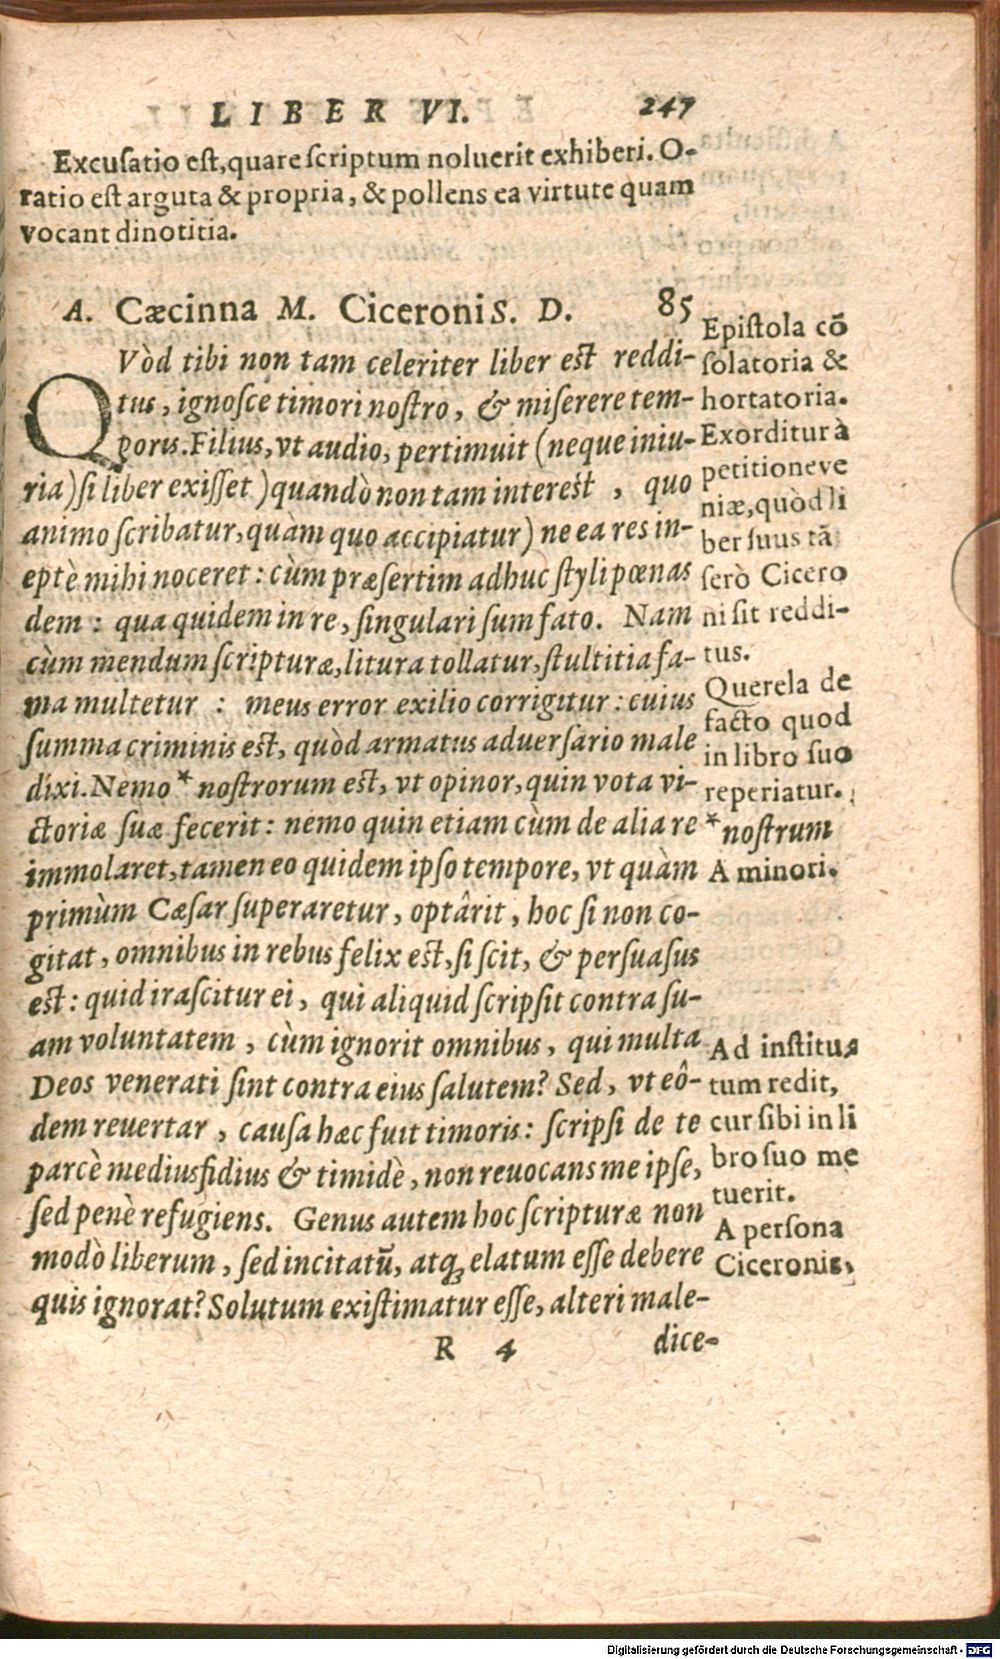 LIBER VI. 247
Excusatio est, quare scriptum noluerit exhiberi. O-
ratio est arguta & propria, & pollens ea virtute quam
vocant dinotitia.
A. Cæcinna M. Ciceroni S. D. 85
QVòd tibi non tam celeriter liber est reddi-
tus, ignosce timori nostro, & miserere tem-
poris. Filius, vt audio, pertimuit (neque iniu-
ria) si liber exisset) quandò non tam interest, quo
animo scribatur, quàm quo accipiatur) ne ea res in-
eptè mihi noceret: cùm præsertim adhuc styli pœnas
dem: qua quidem in re, singulari sum fato. Nam
cùm mendum scripturæ, litura tollatur, stultitia fa-
ma multetur : meus error exilio corrigitur: cuius
summa criminis est, quòd armatus aduersario male
dixi. Nemo * nostrorum est, vt opinor, quin vota vi-
ctoriæ suæ fecerit: nemo quin etiam cùm de alia re
immolaret, tamen eo quidem ipso tempore, vt quàm
primùm Cæsar superaretur, optârit, hoc si non co-
gitat, omnibus in rebus felix est, si scit, & persuasus
est: quid irascitur ei, qui aliquid scripsit contra su-
am voluntatem, cùm ignorit omnibus, qui multa
Deos venerati sint contra eius salutem? Sed, vt eô-
dem reuertar, causa hæc fuit timoris: scripsi de te
parcè mediusfidius & timidè, non reuocans me ipse,
sed penè refugiens. Genus autem hoc scripturæ non
modò liberum, sed incitatū, atq; elatum esse debere
quis ignorat? Solutum existimatur esse, alteri male-
R 4 dice-
Epistola cō
solatoria &
hortatoria.
Exorditur à
petitione ve
niæ, quòd li
ber suus tā
serò Cicero
ni sit reddi-
tus.
Querela de
facto quod
in libro suo
reperiatur.
* nostrum
A minori.
Ad institu-
tum redit,
cur sibi in li
bro suo me
tuerit.
A persona
Ciceronis,
Digitalisierung gefördert durch die Deutsche Forschungsgemeinschaft - DFG